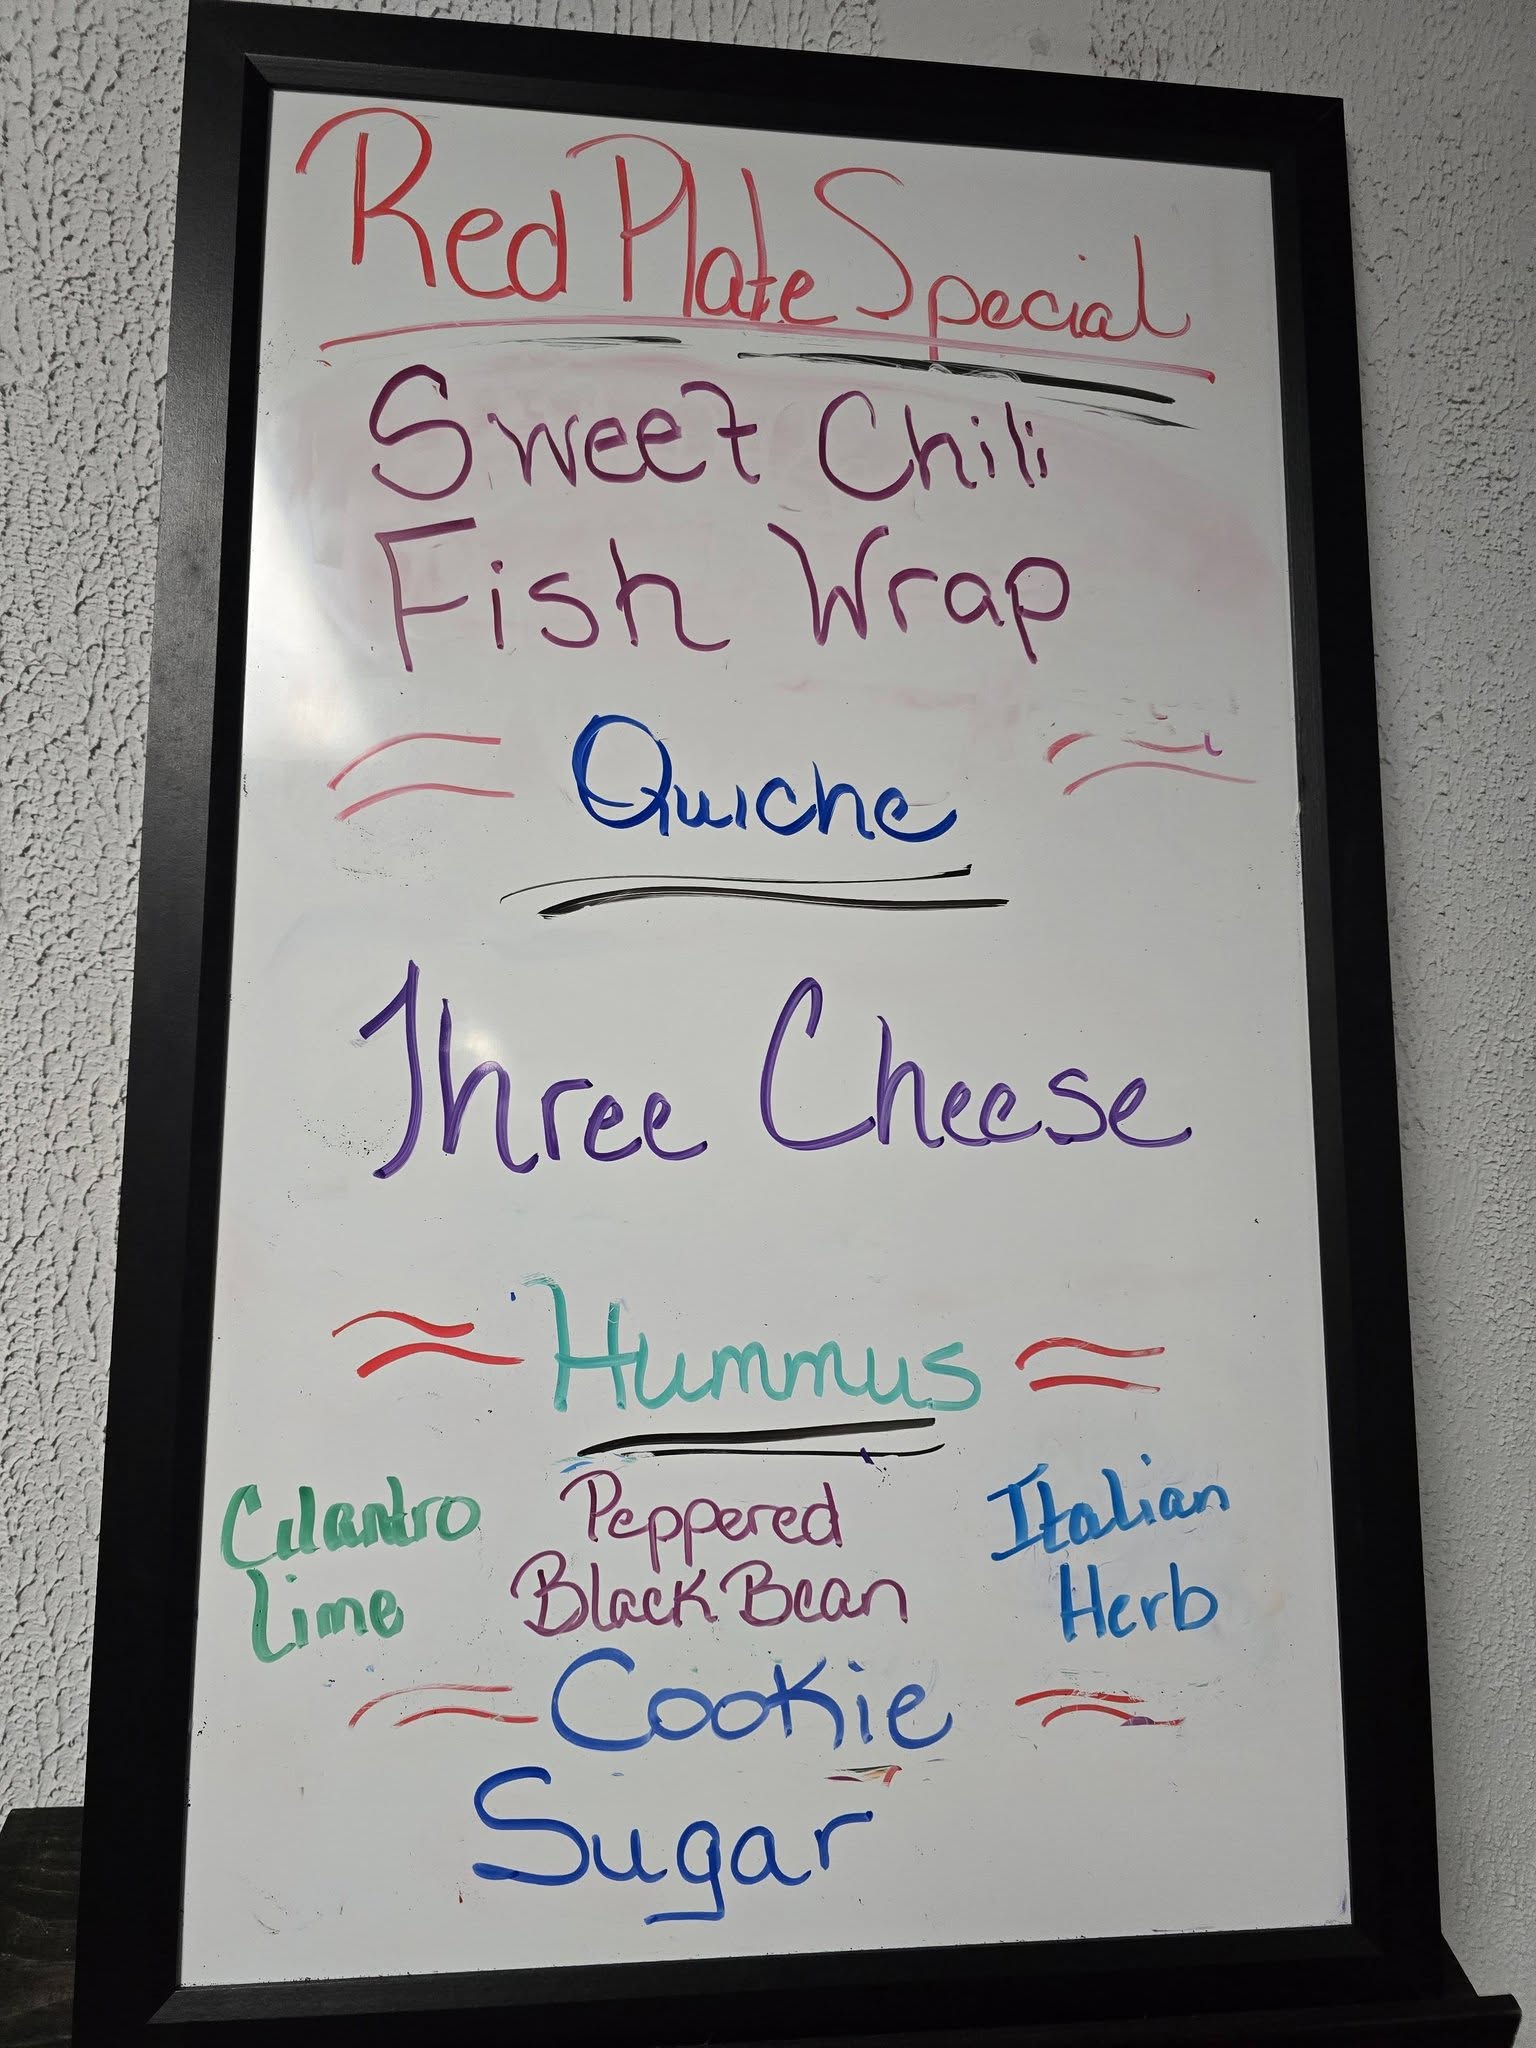 Red Plate Special
Sweet Chili
Fish Wrap
Quiche
Three Cheese
Hummus
Cilantro Peppered Italian
Lime Black Bean Herb
Cookie
Sugar